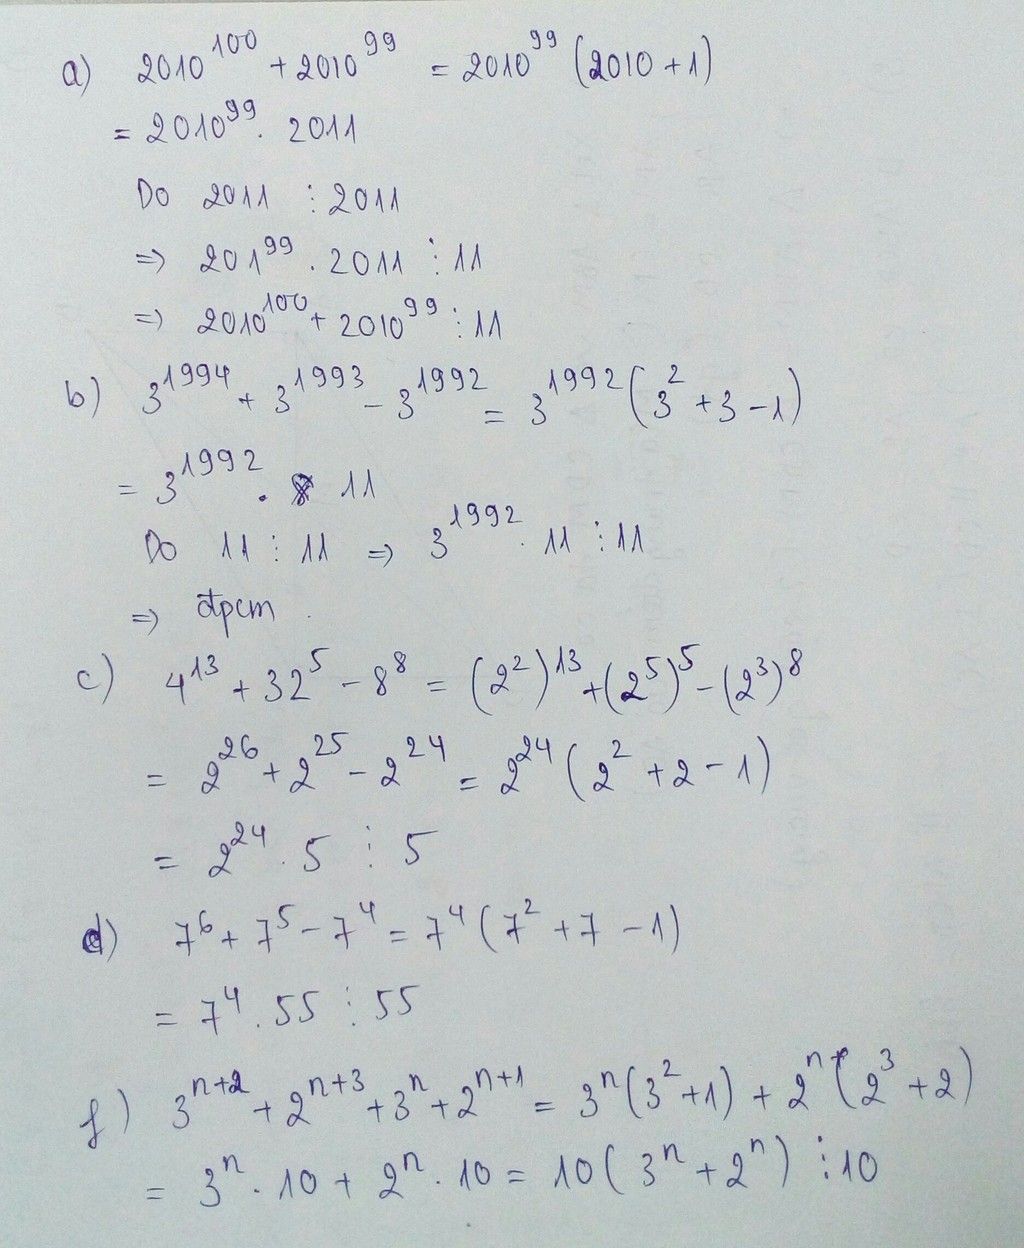 a) 2010^100 + 2010^99 = 2010^99 (2010 + 1)
= 2010^99 . 2011
Do 2011 ⋮ 2011
=> 201^99 . 2011 ⋮ 11
=> 2010^100 + 2010^99 ⋮ 11
b) 3^1994 + 3^1993 - 3^1992 = 3^1992 (3^2 + 3 - 1)
= 3^1992 . 11
Do 11 ⋮ 11 => 3^1992 . 11 ⋮ 11
=> đpcm.
c) 4^13 + 32^5 - 8^8 = (2^2)^13 + (2^5)^5 - (2^3)^8
= 2^26 + 2^25 - 2^24 = 2^24 (2^2 + 2 - 1)
= 2^24 . 5 ⋮ 5
d) 7^6 + 7^5 - 7^4 = 7^4 (7^2 + 7 - 1)
= 7^4 . 55 ⋮ 55
f) 3^(n+2) + 2^(n+3) + 3^n + 2^(n+1) = 3^n (3^2 + 1) + 2^n (2^3 + 2)
= 3^n . 10 + 2^n . 10 = 10 (3^n + 2^n) ⋮ 10